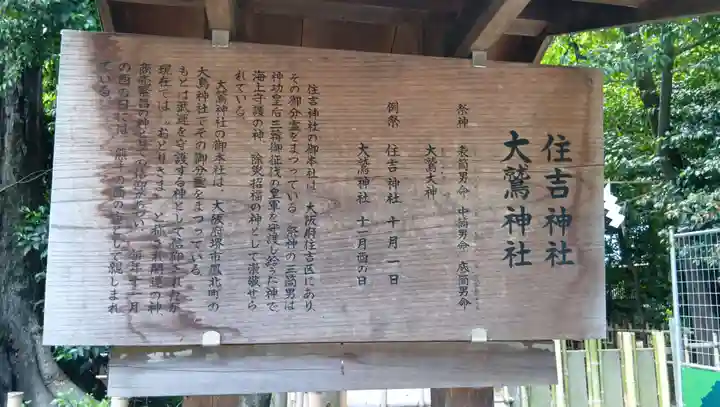 住吉神社
大鷲神社
祭神 表筒男命 中筒男命 底筒男命
大鷲大神
例祭 住吉神社 十月一日
大鷲神社 十一月酉の日
住吉神社の御本社は、大阪府住吉区にあり、
その御分霊をまつっている。祭神の三筒男は
神功皇后三韓御征伐の皇軍を守護し給うた神で、
海上守護の神、除災招福の神として崇敬せら
れている。
大鷲神社の御本社は、大阪府堺市鳳北町の
大鳥神社でその御分霊をまつっている。
もとは武運を守護する神として信仰されたが
現在では"おとりさま"と称され開運の神、
商売繁昌の神と
毎年十一月
の酉の日には、熊手の酉の市として親しまれ
ている。